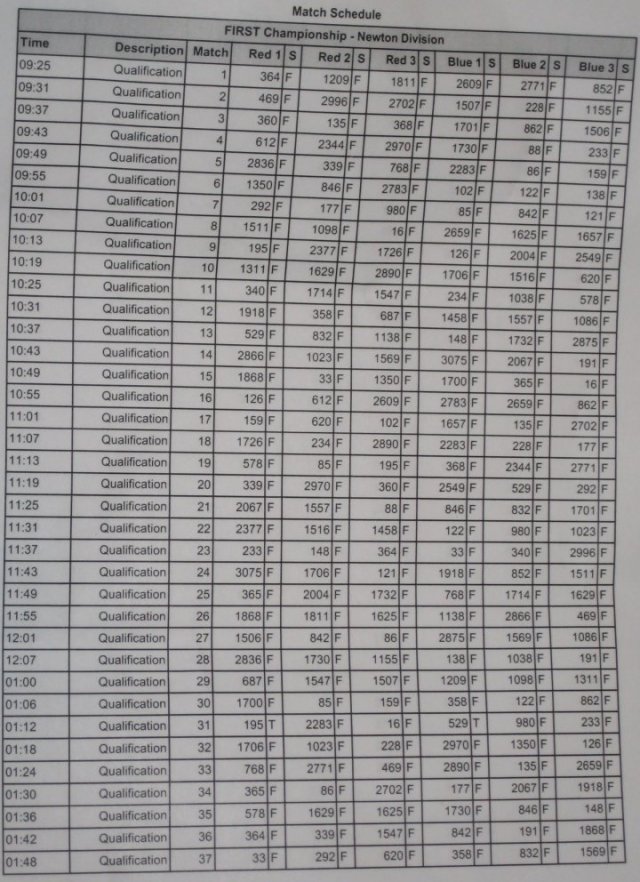 Match Schedule
FIRST Championship - Newton Division
Time Description Match Red 1 S Red 2 S Red 3 S Blue 1 S Blue 2 S Blue 3 S
09:25 Qualification 1 364 F 1209 F 1811 F 2609 F 2771 F 852 F
09:31 Qualification 2 469 F 2996 F 2702 F 1507 F 228 F 1155 F
09:37 Qualification 3 360 F 135 F 368 F 1701 F 862 F 1506 F
09:43 Qualification 4 612 F 2344 F 2970 F 1730 F 88 F 233 F
09:49 Qualification 5 2836 F 339 F 768 F 2283 F 86 F 159 F
09:55 Qualification 6 1350 F 846 F 2783 F 102 F 122 F 138 F
10:01 Qualification 7 292 F 177 F 980 F 85 F 842 F 121 F
10:07 Qualification 8 1511 F 1098 F 16 F 2659 F 1625 F 1657 F
10:13 Qualification 9 195 F 2377 F 1726 F 126 F 2004 F 2549 F
10:19 Qualification 10 1311 F 1629 F 2890 F 1706 F 1516 F 620 F
10:25 Qualification 11 340 F 1714 F 1547 F 234 F 1038 F 578 F
10:31 Qualification 12 1918 F 358 F 687 F 1458 F 1557 F 1086 F
10:37 Qualification 13 529 F 832 F 1138 F 148 F 1732 F 2875 F
10:43 Qualification 14 2866 F 1023 F 1569 F 3075 F 2067 F 191 F
10:49 Qualification 15 1868 F 33 F 1350 F 1700 F 365 F 16 F
10:55 Qualification 16 126 F 612 F 2609 F 2783 F 2659 F 862 F
11:01 Qualification 17 159 F 620 F 102 F 1657 F 135 F 2702 F
11:07 Qualification 18 1726 F 234 F 2890 F 2283 F 228 F 177 F
11:13 Qualification 19 578 F 85 F 195 F 368 F 2344 F 2771 F
11:19 Qualification 20 339 F 2970 F 360 F 2549 F 529 F 292 F
11:25 Qualification 21 2067 F 1557 F 88 F 846 F 832 F 1701 F
11:31 Qualification 22 2377 F 1516 F 1458 F 122 F 980 F 1023 F
11:37 Qualification 23 233 F 148 F 364 F 33 F 340 F 2996 F
11:43 Qualification 24 3075 F 1706 F 121 F 1918 F 852 F 1511 F
11:49 Qualification 25 365 F 2004 F 1732 F 768 F 1714 F 1629 F
11:55 Qualification 26 1868 F 1811 F 1625 F 1138 F 2866 F 469 F
12:01 Qualification 27 1506 F 842 F 86 F 2875 F 1569 F 1086 F
12:07 Qualification 28 2836 F 1730 F 1155 F 138 F 1038 F 191 F
01:00 Qualification 29 687 F 1547 F 1507 F 1209 F 1098 F 1311 F
01:06 Qualification 30 1700 F 85 F 159 F 358 F 122 F 862 F
01:12 Qualification 31 195 T 2283 F 16 F 529 T 980 F 233 F
01:18 Qualification 32 1706 F 1023 F 228 F 2970 F 1350 F 126 F
01:24 Qualification 33 768 F 2771 F 469 F 2890 F 135 F 2659 F
01:30 Qualification 34 365 F 86 F 2702 F 177 F 2067 F 1918 F
01:36 Qualification 35 578 F 1629 F 1625 F 1730 F 846 F 148 F
01:42 Qualification 36 364 F 339 F 1547 F 842 F 191 F 1868 F
01:48 Qualification 37 33 F 292 F 620 F 358 F 832 F 1569 F